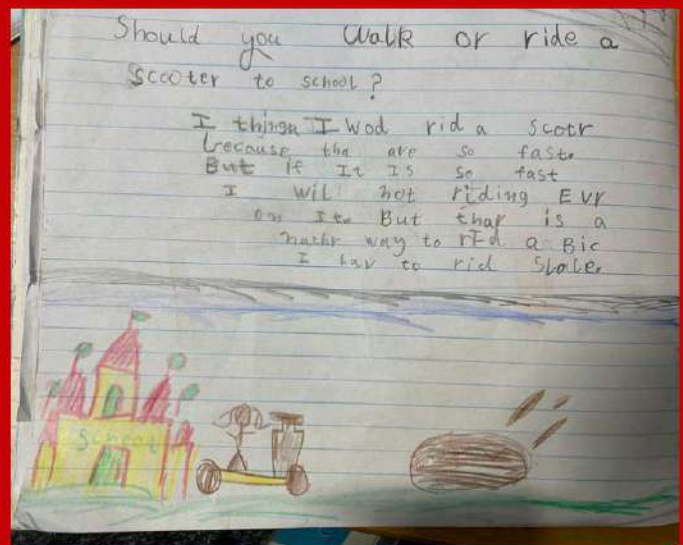 Should you Walk or ride a
Scooter to school?
I think I wod rid a scotr
because tha are so fast.
But if It IS so fast
I wil not riding Evr
on It. But thar is a
nathr way to rId a Bic
I hav to rid slole.
School